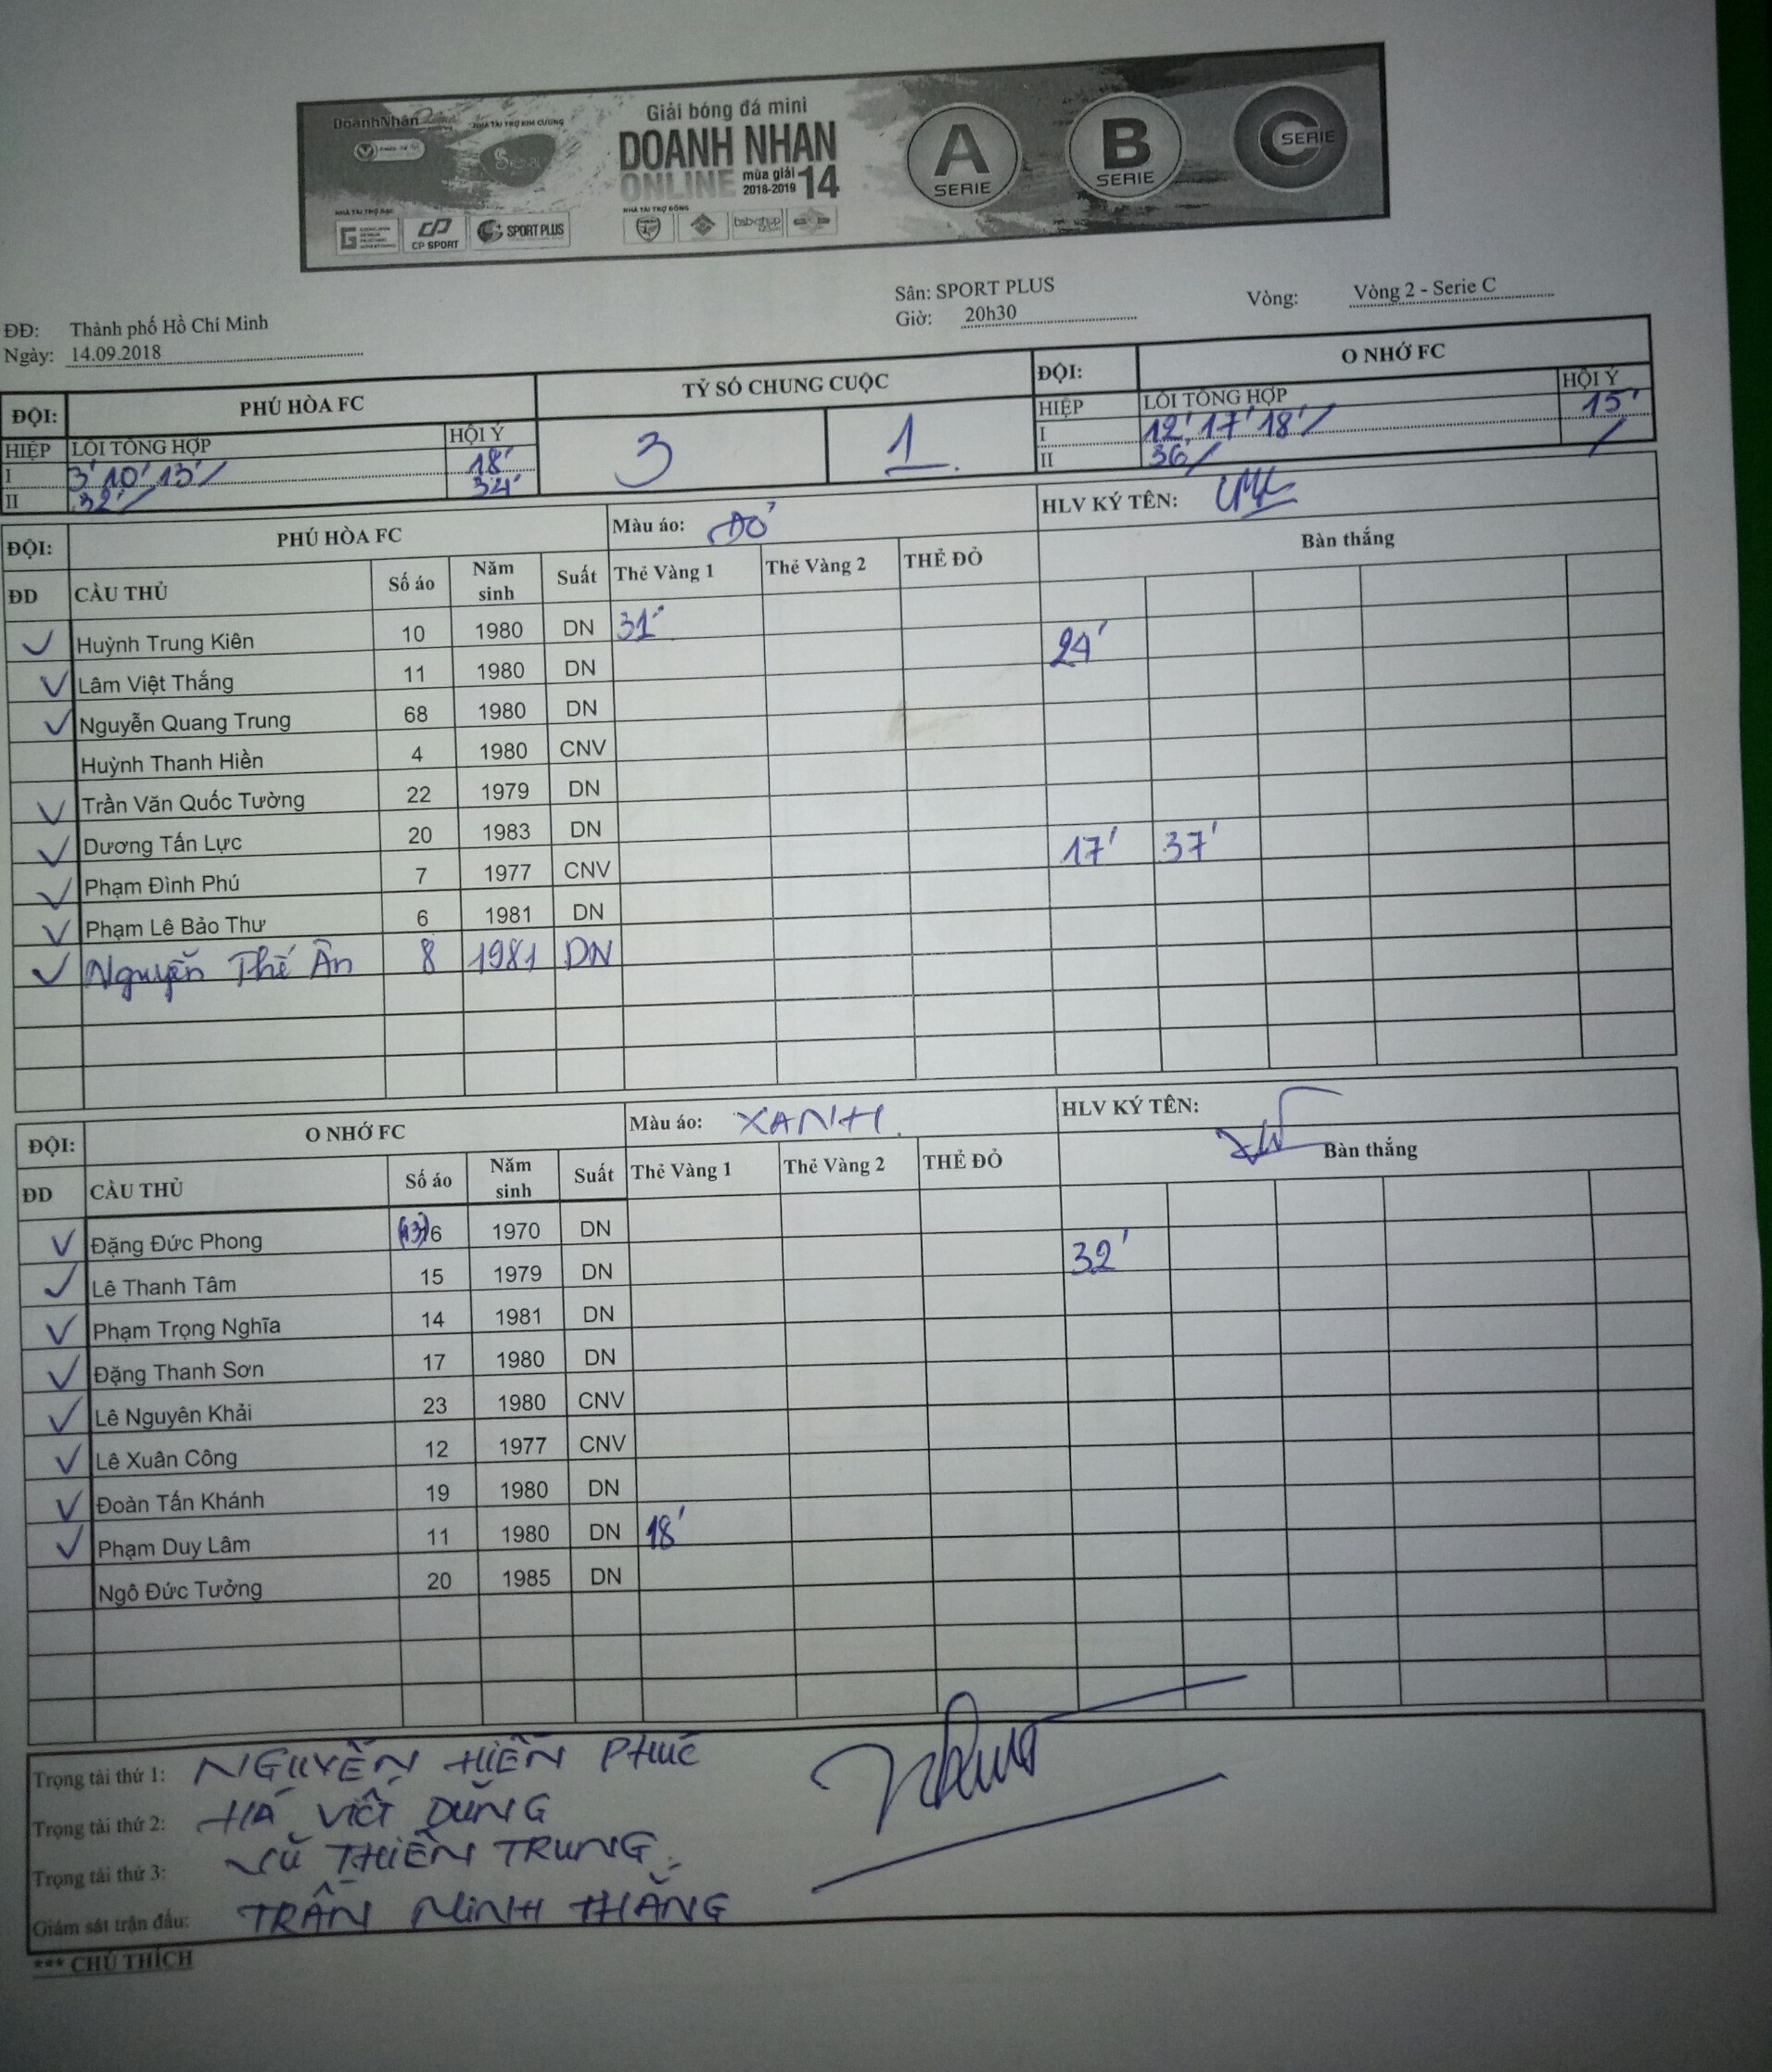 DoanhNhân
NHÀ TÀI TRỢ KIM CƯƠNG
Giải bóng đá mini
DOANH NHAN
ONLINE mùa giải 2018-2019 14
A SERIE
B SERIE
C SERIE
NHÀ TÀI TRỢ BẠC
NHÀ TÀI TRỢ ĐỒNG
CP SPORT
SPORT PLUS
ĐĐ: Thành phố Hồ Chí Minh
Sân: SPORT PLUS
Vòng: Vòng 2 - Serie C
Ngày: 14.09.2018
Giờ: 20h30
ĐỘI: PHÚ HÒA FC TỶ SỐ CHUNG CUỘC ĐỘI: O NHỚ FC
HIỆP LỖI TỔNG HỢP HỘI Ý 3 1 HIỆP LỖI TỔNG HỢP HỘI Ý
I 3' 10' 13' / 18' I 12' 17' 18' / 15'
II 32' / 34' II 36' / /
ĐỘI: PHÚ HÒA FC Màu áo: ĐỎ HLV KÝ TÊN:
ĐD CẦU THỦ Số áo Năm sinh Suất Thẻ Vàng 1 Thẻ Vàng 2 THẺ ĐỎ Bàn thắng
Huỳnh Trung Kiên 10 1980 DN 31'
Lâm Việt Thắng 11 1980 DN 24'
Nguyễn Quang Trung 68 1980 DN
Huỳnh Thanh Hiền 4 1980 CNV
Trần Văn Quốc Tường 22 1979 DN
Dương Tấn Lực 20 1983 DN
Phạm Đình Phú 7 1977 CNV 17' 37'
Phạm Lê Bảo Thư 6 1981 DN
Nguyễn Thế Ân 8 1981 DN
ĐỘI: O NHỚ FC Màu áo: XANH HLV KÝ TÊN:
ĐD CẦU THỦ Số áo Năm sinh Suất Thẻ Vàng 1 Thẻ Vàng 2 THẺ ĐỎ Bàn thắng
Đặng Đức Phong (13) 6 1970 DN
Lê Thanh Tâm 15 1979 DN 32'
Phạm Trọng Nghĩa 14 1981 DN
Đặng Thanh Sơn 17 1980 DN
Lê Nguyên Khải 23 1980 CNV
Lê Xuân Công 12 1977 CNV
Đoàn Tấn Khánh 19 1980 DN
Phạm Duy Lâm 11 1980 DN 18'
Ngô Đức Tưởng 20 1985 DN
Trọng tài thứ 1: NGUYỄN HIỀN PHÚC
Trọng tài thứ 2: HÁ VIẾT DŨNG
Trọng tài thứ 3: VŨ THIÊN TRUNG
Giám sát trận đấu: TRẦN MINH THẮNG
*** CHÚ THÍCH